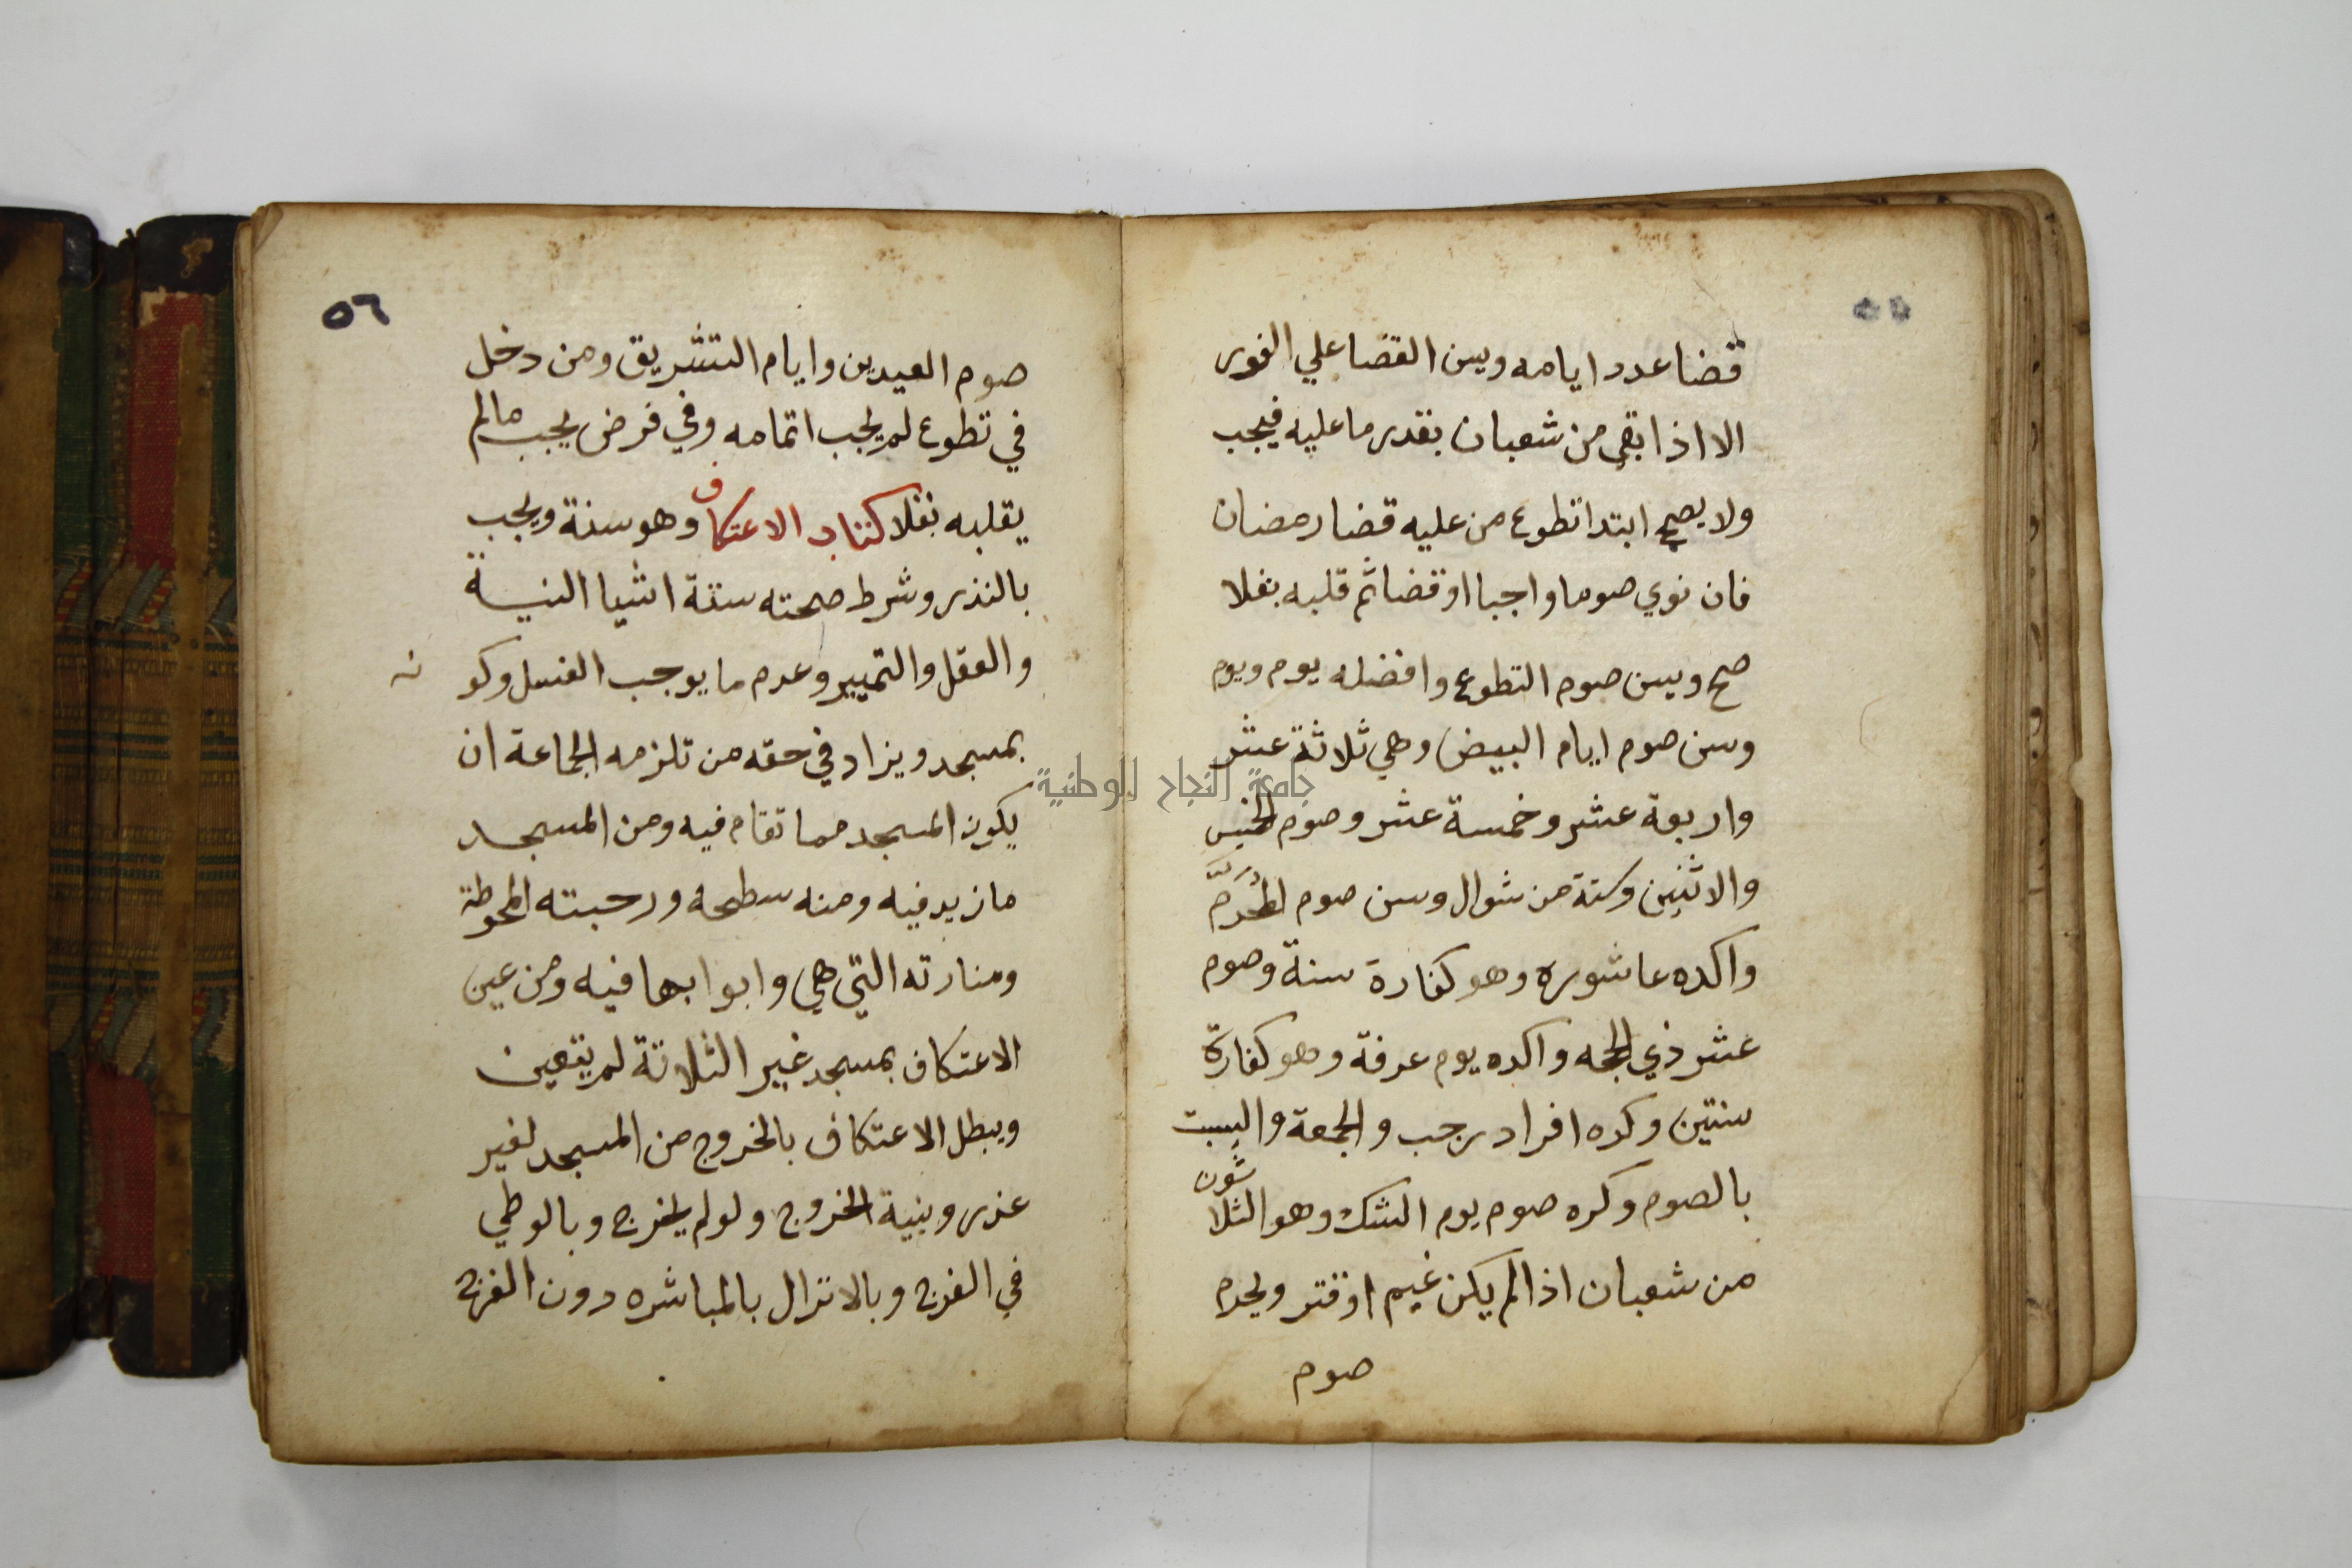 قضا عدد ايامه ويسن القضا علي الفور
الا اذا بقي من شعبان بقدر ما عليه فيجب
ولا يصح ابتدا تطوع من عليه قضا رمضان
فان نوي صوما واجبا او قضا ثم قلبه نفلا
صح ويسن صوم التطوع وافضله يوم ويوم
وسن صوم ايام البيض وهي ثلاثة عشر
واربعة عشر وخمسة عشر وصوم الخميس
والاثنين وستة من شوال وسن صوم المُحَرَّم
واكده عاشوره وهو كفارة سنة وصوم
عشر ذي الحجه واكده يوم عرفة وهو كفارة
سنتين وكره افراد رجب والجمعة والسبت
بالصوم وكره صوم يوم الشك وهو الثلاثون
من شعبان اذا لم يكن غيم او قتر ويحرم
صوم
٥٦
صوم العيدين وايام التشريق ومن دخل
في تطوع لم يجب اتمامه وفي فرض يجب ما لم
يقلبه نفلا كتاب الاعتكاف وهو سنة ويجب
بالنذر وشرط صحته ستة اشيا النية
والعقل والتمييز وعدم ما يوجب الغسل وكونه
بمسجد ويزاد في حقه من تلزمه الجماعة ان
يكون المسجد مما تقام فيه ومن المسجد
ما زيد فيه ومنه سطحه ورحبته المحوطة
ومنارته التي هي وابوابها فيه ومن عين
الاعتكاف بمسجد غير الثلاثة لم يتعين
ويبطل الاعتكاف بالخروج من المسجد لغير
عذر وبنية الخروج ولو لم يخرج وبالوطي
في الفرج وبالانزال بالمباشره دون الفرج
جامعة النجاح الوطنية